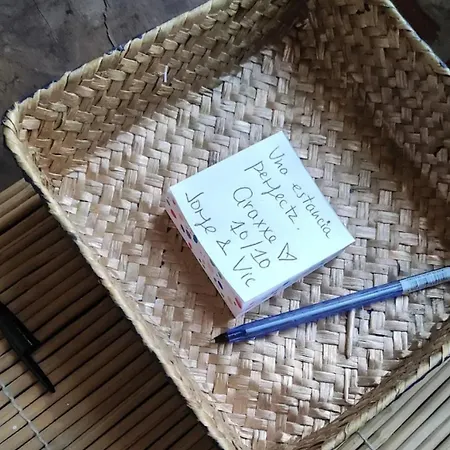 Una estancia
perfecta.
Araxxe ♡
10/10
Jorge & Vic